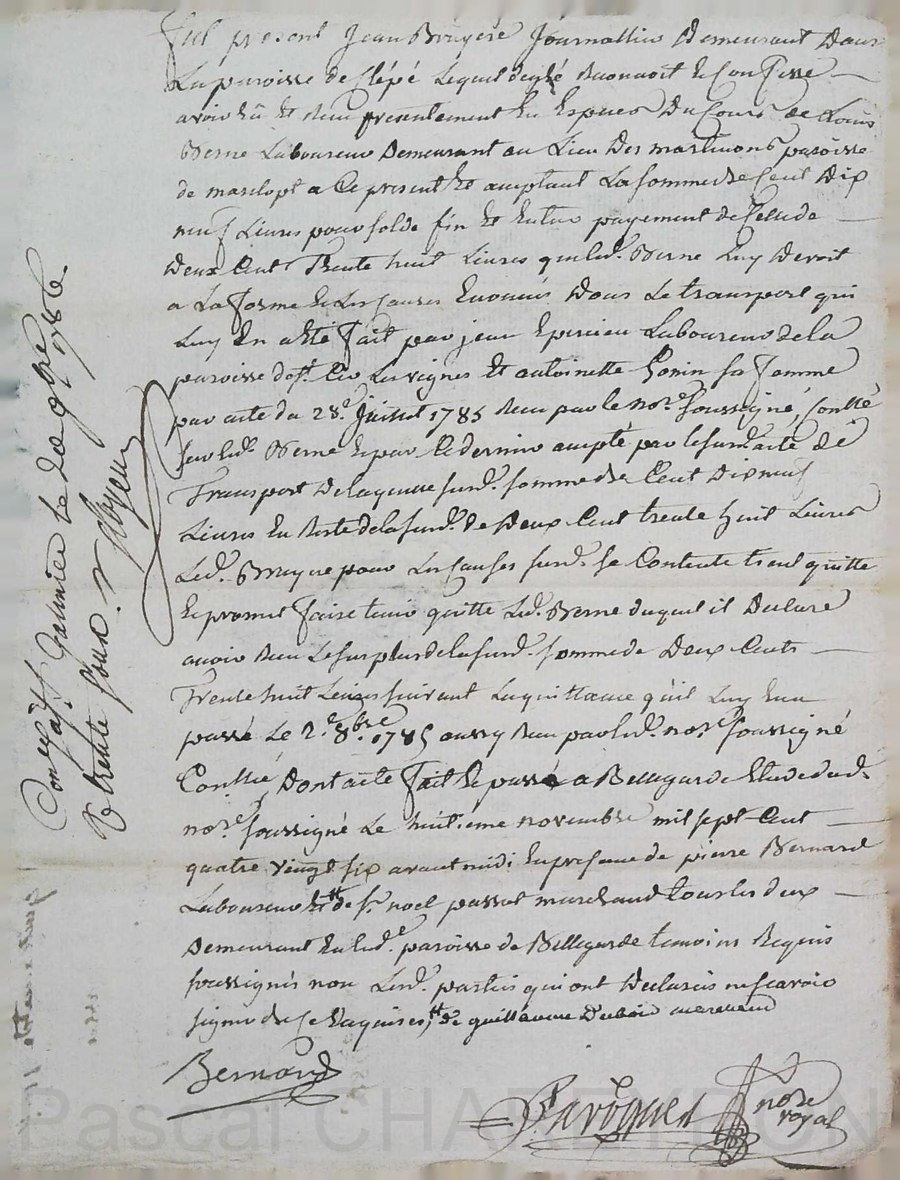 fut présent Jean Bruyere Journallier Demeurant Dans
La paroisse de Clépé Lequel de gré Reconnoit et Confesse
avoir Eû Et Recu presentement En Especes Du Cours de Louis
Berne Laboureur Demeurant au Lieu Des martinons paroisse
de marclopt a Ce present Et acceptant La somme de Cent Dix
neuf Livres pour solde fin Et Entier payement de Celle de
Deux Cent Trente huit Livres que led. Berne Luy Devoit
a La forme Et Les Causes Enoncées Dans Le transport qui
Luy En a Eté fait par jean Laboureur de la
paroisse de st. Cir Les vignes Et antoinette Gonin sa femme
par acte du 28e. Juillet 1785 Recu par le nore. soussigné, Conllé
sur led. Berne Et par Ce dernier accepté par le surd. acte de
Transport De laquelle surd. somme de Cent Dix neuf
Livres En Reste de la surd. de Deux Cent trente huit Livres
Led. Bruyere pour Les Causes surd. se Contente tient quitte
Et promet faire tenir quitte Led. Berne duquel il Declare
avoir Recu Le surplus de la surd. somme de Deux Cents
Trente huit Livres suivant La quittance qu'il Luy En a
passé Le 2e. 8bre 1785 aussy Recu par led. nore. soussigné
Conllée, Dont acte fait Et passé a Bellegarde Etude dud.
nore. soussigné Le huitieme novembre mil sept Cent
quatre vingt six avant midi En presence de pierre Bernard
Laboureur Et de sr. noel passot marchand tous les deux
Demeurant En lad. paroisse de Bellegarde temoins Requis
soussignés non Lesd. parties qui ont Declarés ne scavoir
signer de Ce Enquises, de guillaume Dubois
Bernard
nore
royal
Conllé à st. Galmier le 20 9bre 1786.
R trente sous.
Pascal CHAMBRON